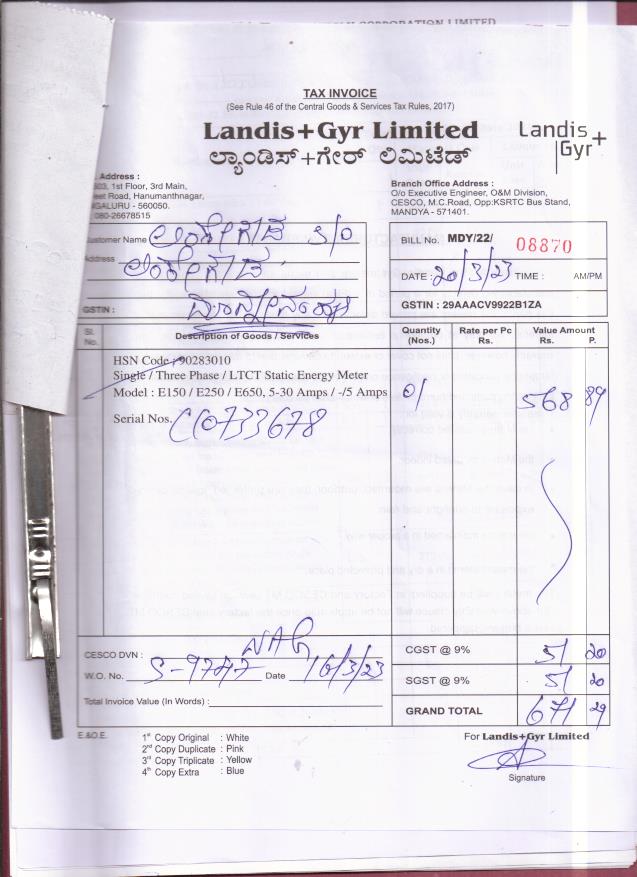 CORPORATION LIMITED
TAX INVOICE
(See Rule 46 of the Central Goods & Services Tax Rules, 2017)
Landis+Gyr Limited
ಲ್ಯಾಂಡಿಸ್+ಗೇರ್ ಲಿಮಿಟೆಡ್
Landis
Gyr+
Address :
1st Floor, 3rd Main,
Road, Hanumanthnagar,
560050.
080-26678515
Branch Office Address :
O/o Executive Engineer, O&M Division,
CESCO, M.C.Road, Opp:KSRTC Bus Stand,
MANDYA - 571401.
Customer Name S/O
Address
GSTIN :
BILL No. MDY/22/ 08870
DATE : 20/3/23 TIME : AM/PM
GSTIN : 29AAACV9922B1ZA
Sl. No. Description of Goods / Services Quantity (Nos.) Rate per Pc Rs. Value Amount Rs. P.
HSN Code : 90283010
Single / Three Phase / LTCT Static Energy Meter
Model : E150 / E250 / E650, 5-30 Amps / -/5 Amps 01 568 89
Serial Nos. CC0733678
CESCO DVN : NAG
W.O. No. S-9747 Date 16/3/23
Total Invoice Value (In Words) :
CGST @ 9% 51 20
SGST @ 9% 51 20
GRAND TOTAL 671 29
E.&O.E.
1st Copy Original : White
2nd Copy Duplicate : Pink
3rd Copy Triplicate : Yellow
4th Copy Extra : Blue
For Landis+Gyr Limited
Signature